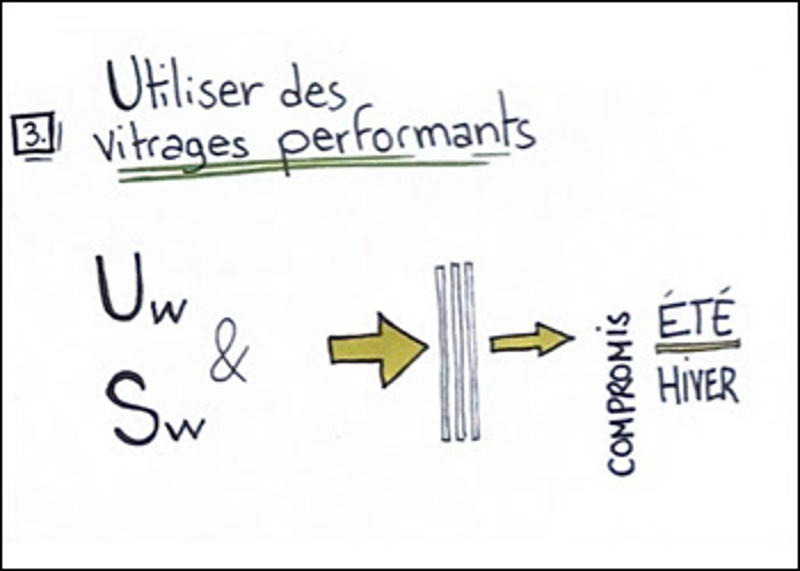 3.
Utiliser des
vitrages performants
Uw
&
Sw
COMPROMIS
ÉTÉ
HiVER